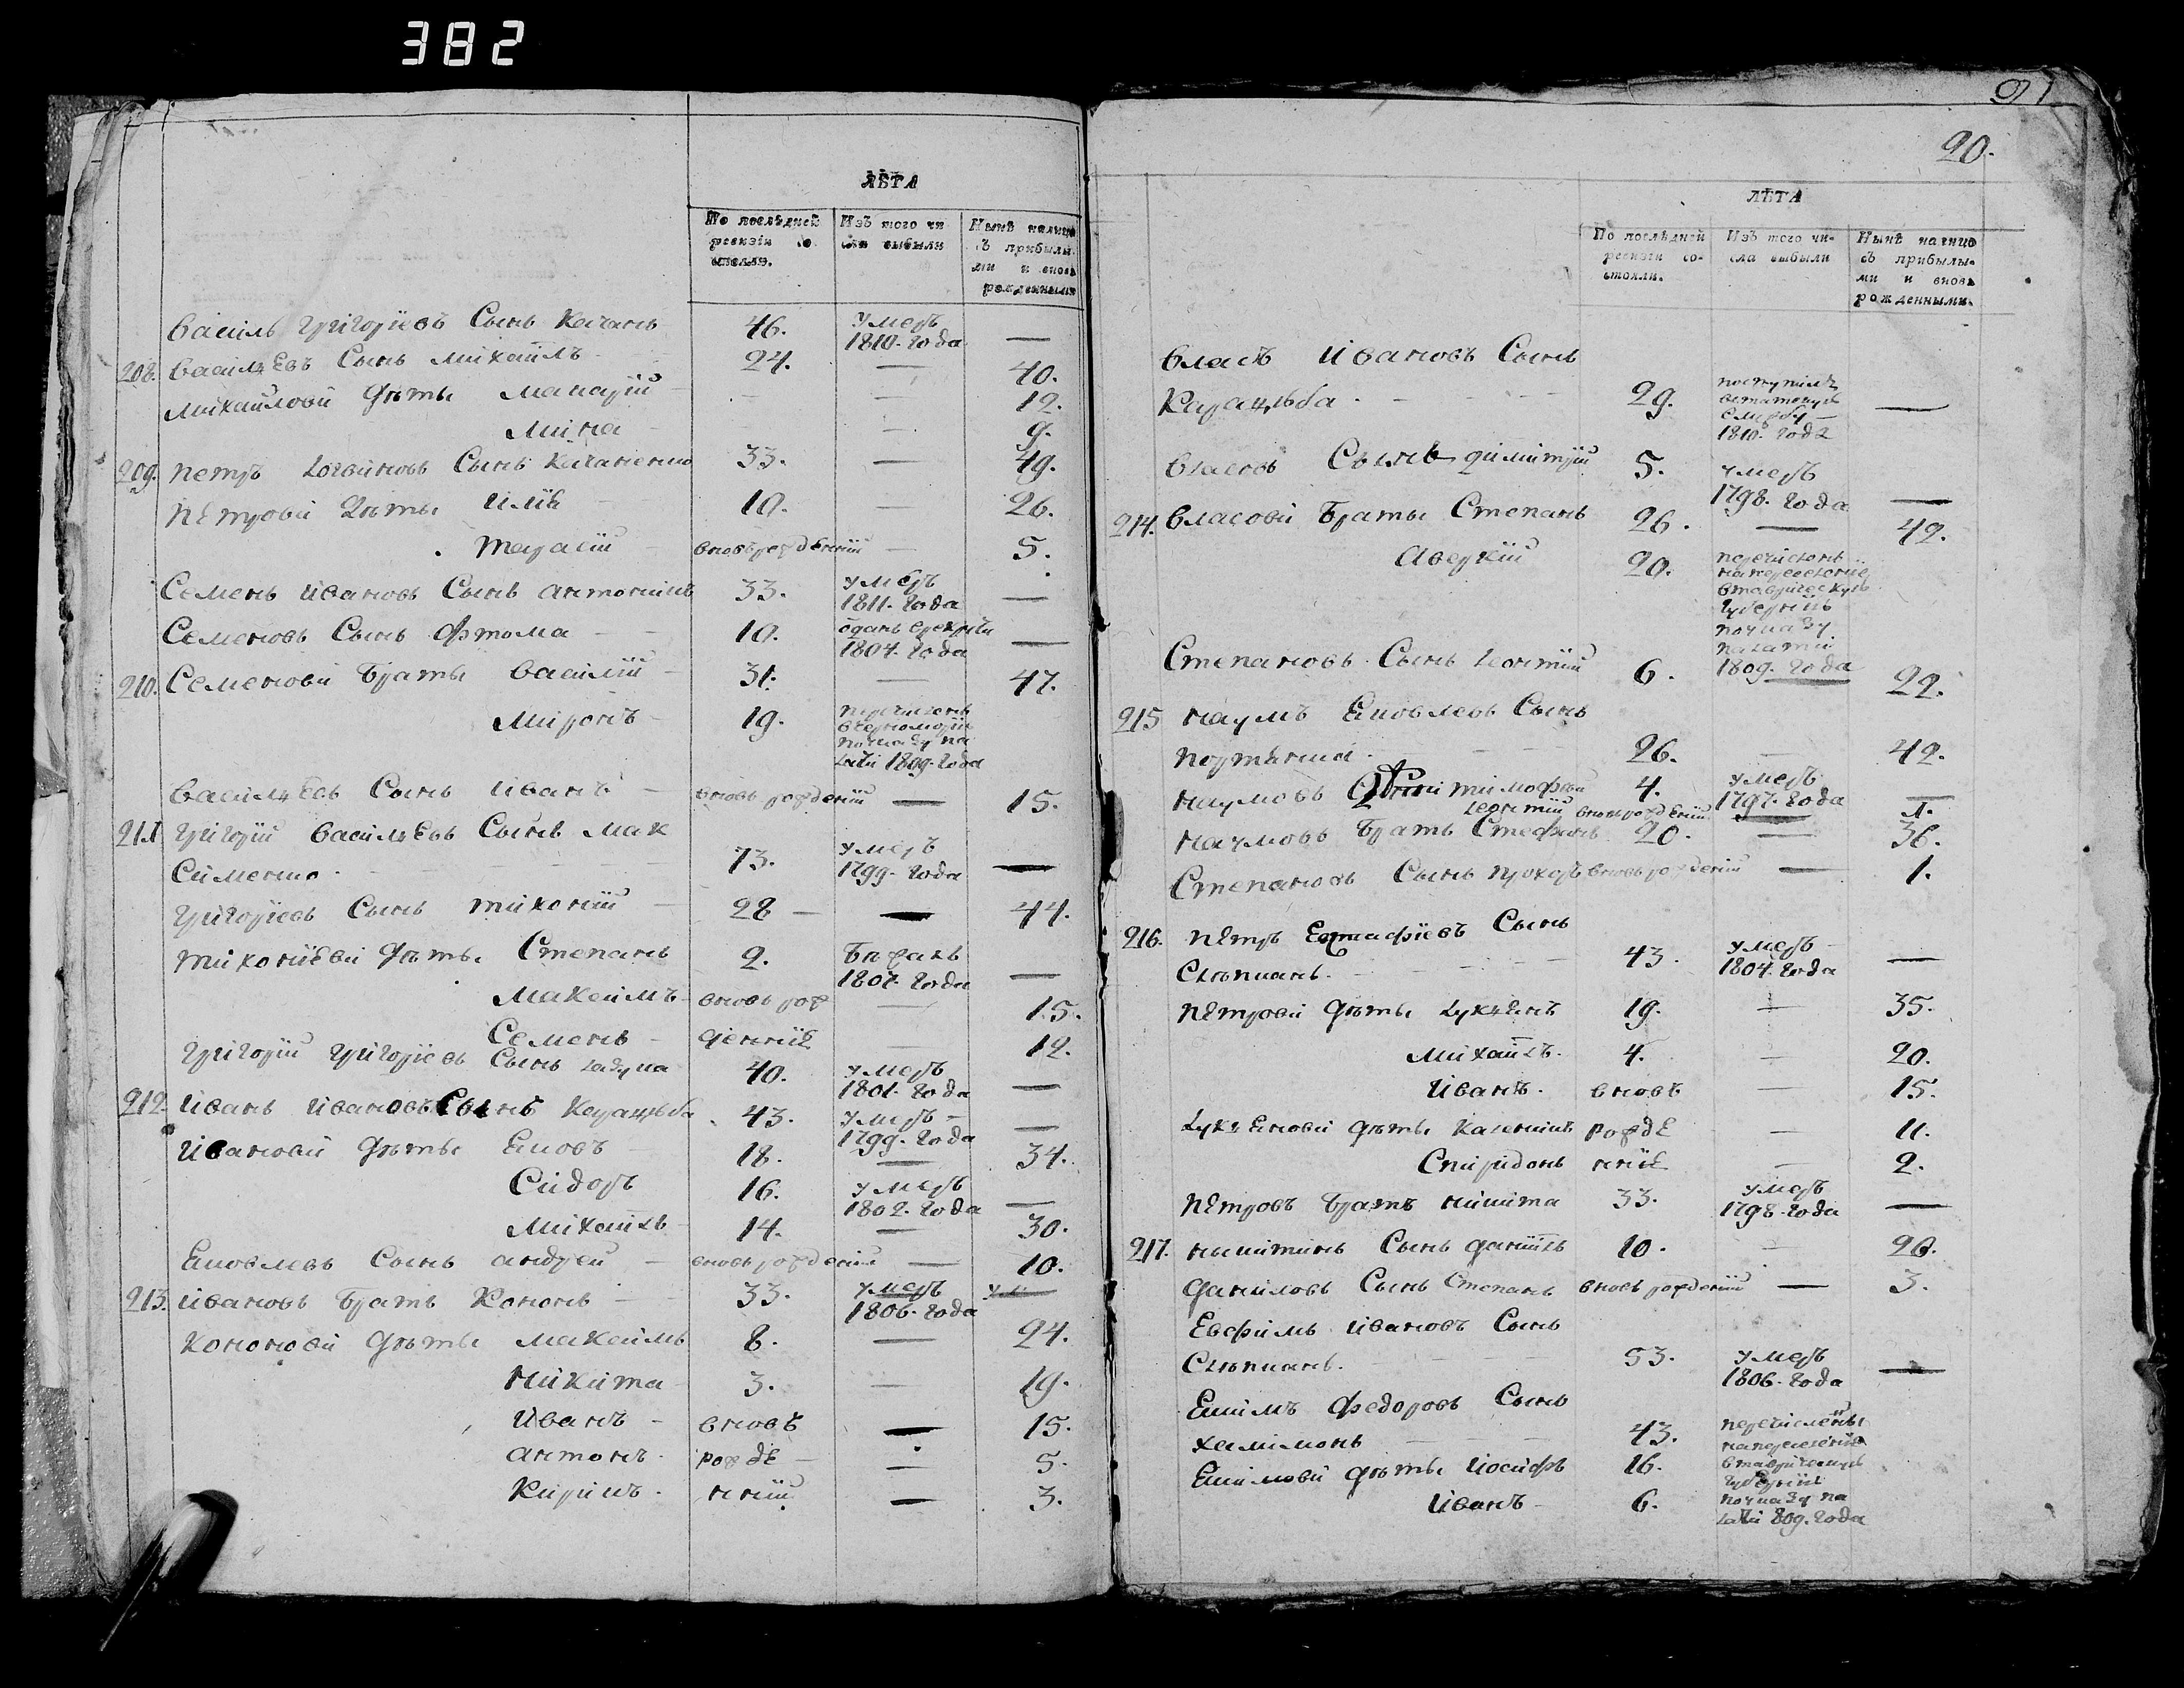 382
ЛѢТА
По послѣдней ревизіи со стояли.
Изъ того чи сла выбыли
Нынѣ налицо съ прибылы ми и вновь рожденными
Василь Григоріевъ Сынъ Качанъ 46. умеръ 1810. года —
208. Васильевъ Сынъ Михайлъ 24. — 40.
Михайловы дѣты Макарій — — 12.
Мина — 9.
209. Петръ Логвиновъ Сынъ 33. — 49.
Петровы дѣты Илія 10. — 26.
Тарасій вновърожденній — 5.
Семенъ Ивановъ Сынъ 33. умеръ 1811. года —
Семеновъ Сынъ Фтома 10. 1804. года —
210. Семеновы Браты Василій 31. — 47.
Миронъ 19. 1809. года
Васильевъ Сынъ Иванъ вновь рожденій — 15.
211. Григорій Васильевъ Сынъ Мак
Сименко 73. умеръ 1799. года —
Григоріевъ Сынъ Тихоній 28 — — 44.
Тихоніевы дѣты Степанъ 2. Бѣжалъ 1807. года —
Максимъ вновь рож — 15.
Семенъ деннiе — 12.
Григорій Григоріевъ Сынъ 40. умеръ 1801. года —
212. Иванъ Ивановъ Сынъ Карацюба 43. умеръ 1799. года —
Ивановы дѣты Яковъ 18. — 34.
Сидоръ 16. умеръ 1802. года —
Михайлъ 14. — 30.
Яковлевъ Сынъ Андрей вновь рожденій — 10.
213. Ивановъ Братъ Кононъ 33. умеръ 1806. года —
Кононовы дѣты Максимъ 8. — 24.
Никита 3. — 19.
Иванъ вновь — 15.
Антонъ рожде — 5.
Кирилъ нній — 3.
91
90.
ЛѢТА
По послѣдней ревизіи со- стояли.
Изъ того чи- сла выбыли
Нынѣ налицо съ прибылы- ми и вновь рожденными.
Власъ Ивановъ Сынъ
Карацюба 29. поступилъ 1810. года —
Власовъ Сынъ Димитрій 5. умеръ 1798. года —
214. Власовы Браты Степанъ 26. — 42.
Аверкій 20. перечисленъ на переселеніе в таврическую губернію по указу палаты 1809. года
Степановъ Сынъ Леонтій 6. 22.
215 Наумъ Яковлевъ Сынъ
26. — 42.
Наумовъ Тимофей 4. умеръ 1797. года —
Леонтій вновьрожденій 1.
Наумовъ Братъ Стефанъ 20. — 36.
Степановъ Сынъ Прохоръ вновь рожденій — 1.
216. Петръ Евстафіевъ Сынъ
Слѣпканъ. 43. умеръ 1804. года —
Петровы дѣты Лукьянъ 19. — 35.
Михайлъ. 4. — 20.
Иванъ. вновъ — 15.
Лукьяновы дѣты рожде — 11.
Спиридонъ нніе — 2.
Петровъ Братъ Никита 33. умеръ 1798. года —
217. Никитинъ Сынъ Даніилъ 10. — 26.
Даниловъ Сынъ Степанъ вновь рожденій — 3.
Евфимъ Ивановъ Сынъ
Слѣпканъ. 53. умеръ 1806. года —
Екимъ Федоровъ Сынъ
43. перечислены на переселеніе в таврическую губернію по указу па латы 809. года
Екимовы дѣты Иосифъ 16.
Иванъ 6.